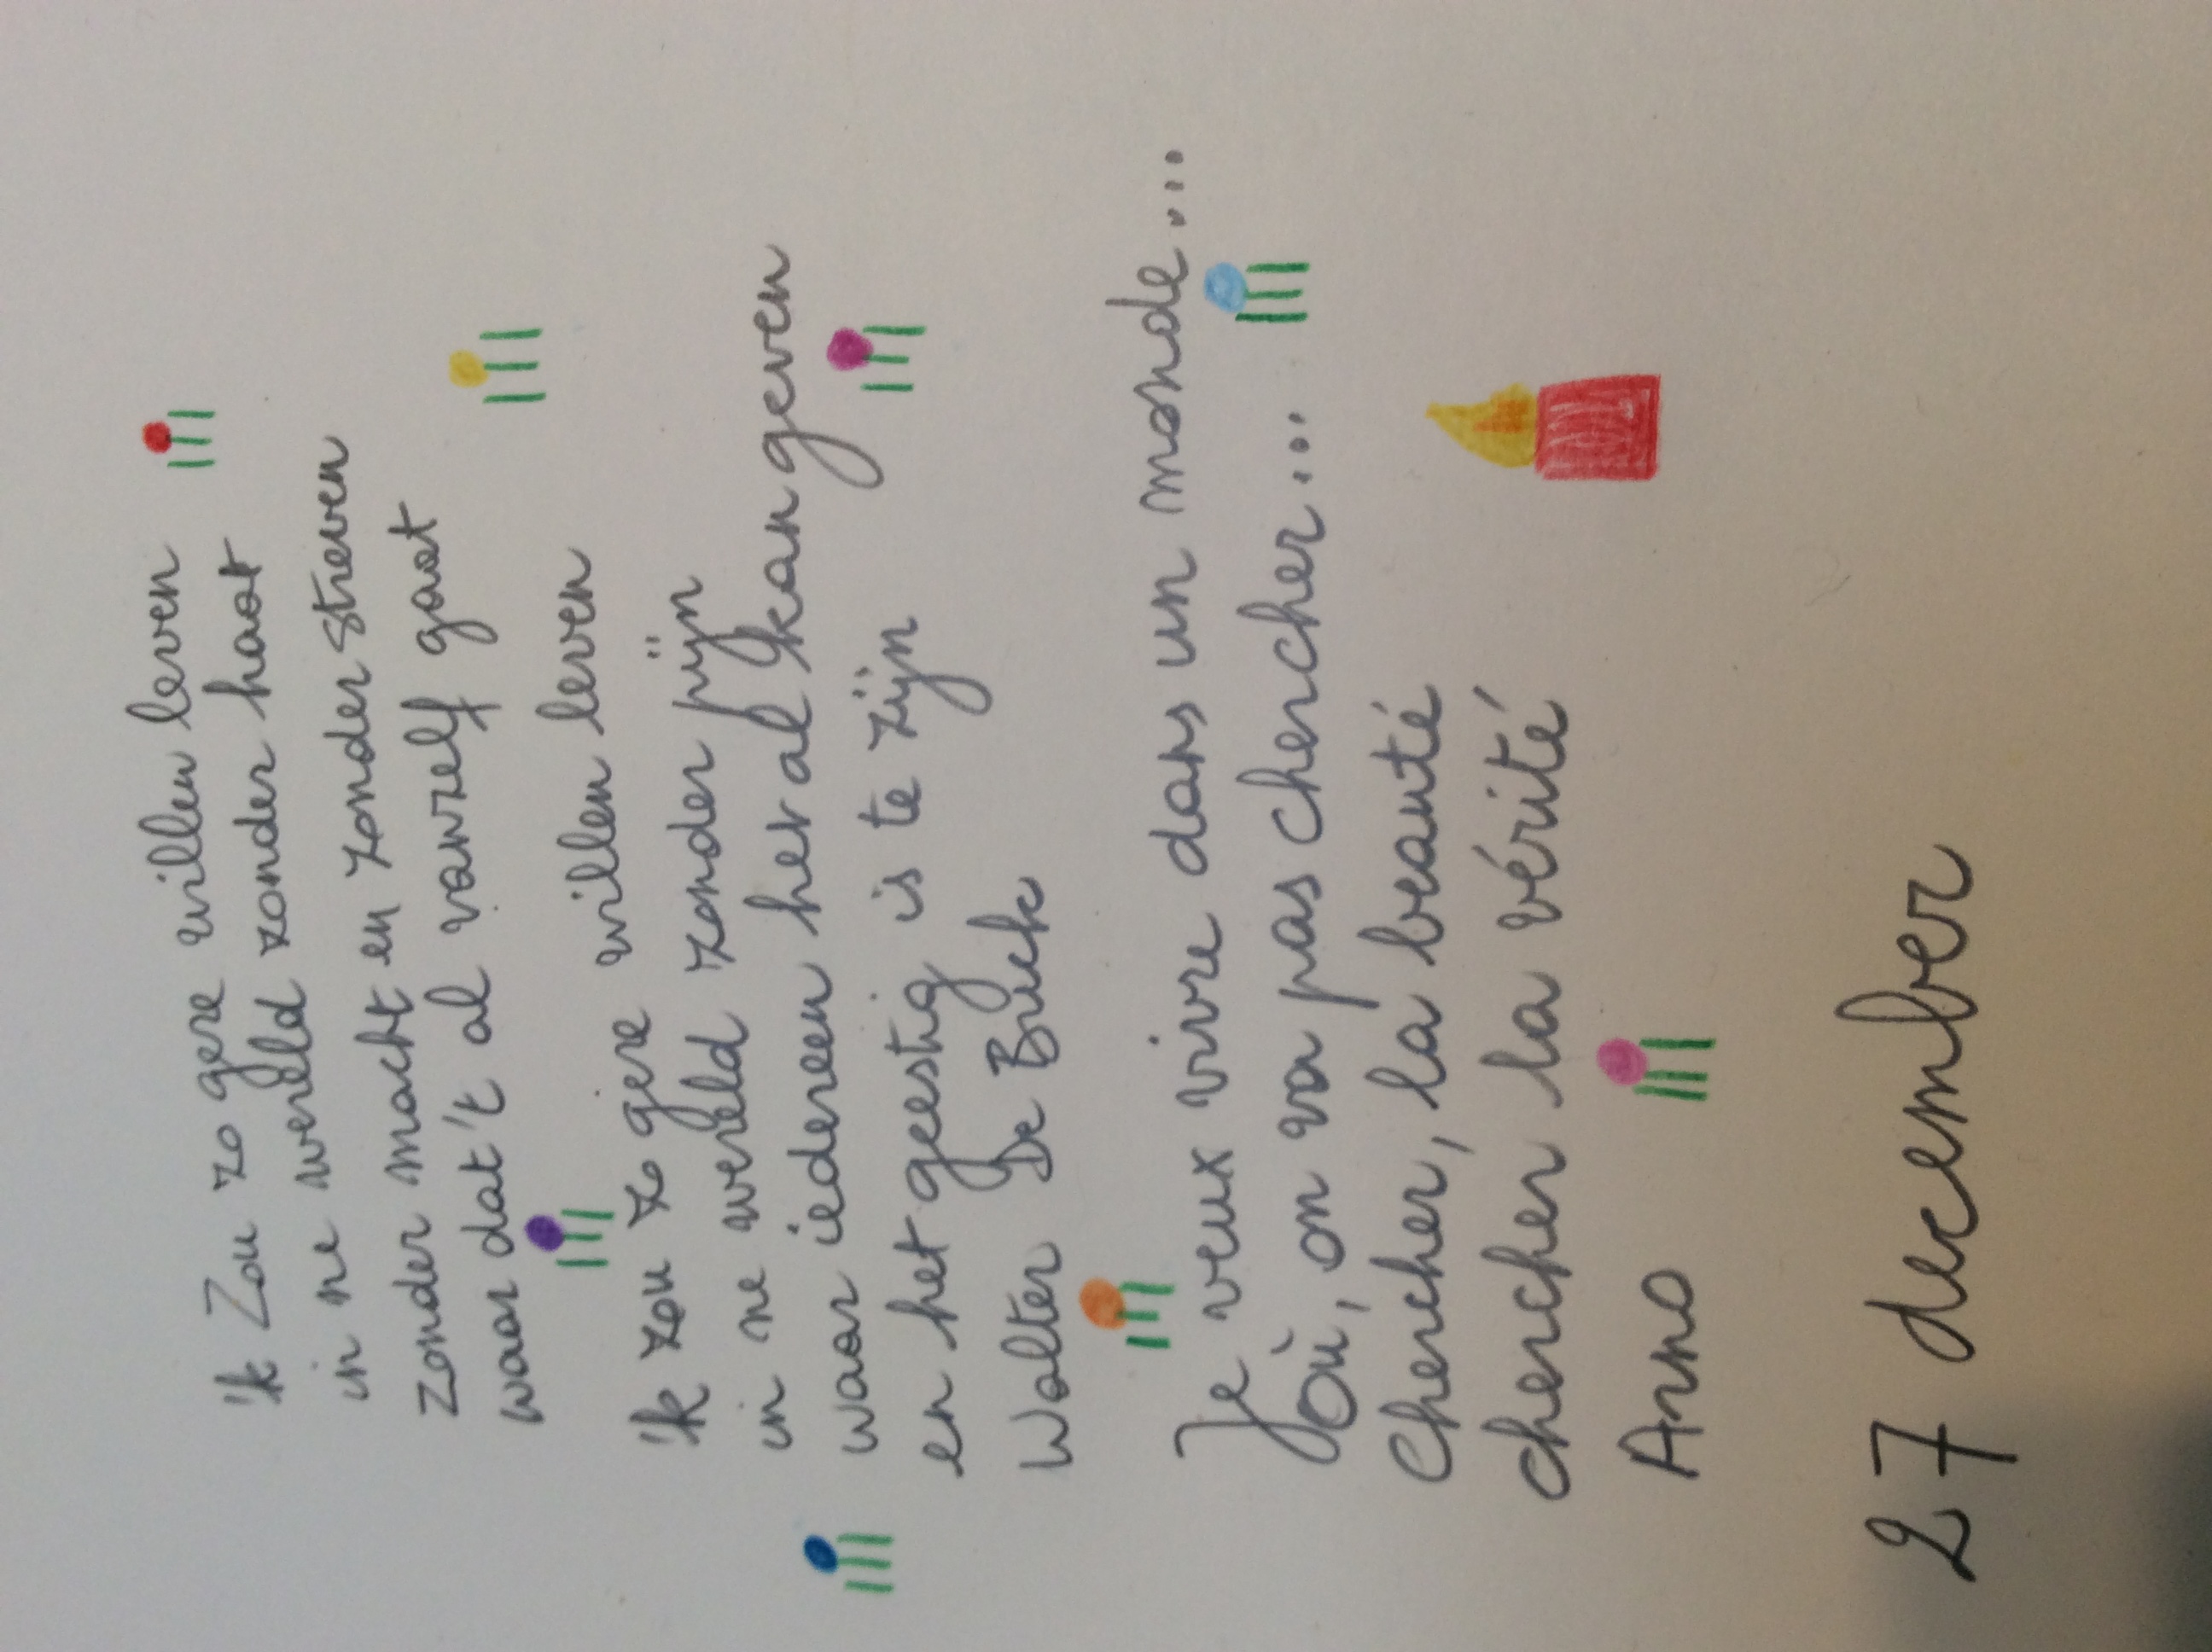 'k Zou zo gere willen leven
in ne wereld zonder haat
zonder macht en zonder streven
waar dat 't al vanzelf gaat
'k zou zo gere willen leven
in ne wereld zonder pijn
waar iedereen het al kan geven
en het geestig is te zijn
Walter De Buck
Je veux vivre dans un monde...
où, on va pas chercher...
Chercher, la beauté
chercher la vérité
Arno
27 december